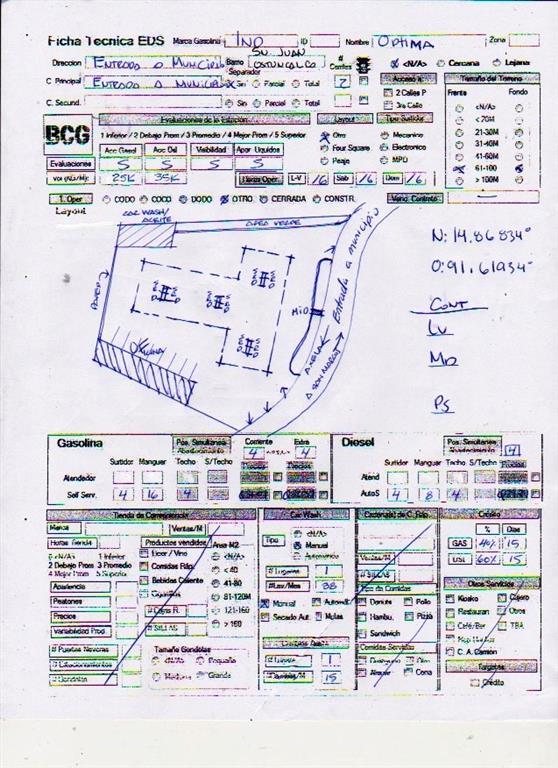 Ficha Tecnica EDS Marca Gasolina IND ID Nombre OPTIMA Zona
Direccion ENTRADA A MUNICIPIO Barrio SN. JUAN OSTUNCALCO # <N/A> Cercana Lejana
Separador
C Principal ENTRADA A MUNICIPIO Sin Parcial Total 2
C. Secund. Sin Parcial Total
2 Calles P
3ra Calle
Tamaño del Terreno
Frente Fondo
<N/A>
< 20M
21-30M
31-40M
41-60M
61-100
> 100M
BCG
Evaluaciones de la Estación
1 Inferior / 2 Debajo Prom / 3 Promedio / 4 Mejor Prom / 5 Superior
Acc Gasol Acc Dsl Visibilidad Apar Liquidos
Evaluaciones 5 5 5 5
25K 35K
Layout
Otro
Four Square
Peaje
Tipo Surtidor
Mecanico
Electronico
MPD
Horas Oper L-V 16 Sab 16 Dom 16
1. Oper CODO COCO DODO OTRO CERRADA CONSTR. Venc. Contrato
Layout
CAR WASH/
ACEITE
AREA VERDE
N: 14.86834°
O: 91.61934°
CONT
LV
MD
PS
MID
Entrada a municipio
A XELA
A SAN MARCOS
Gasolina Pos. Simultaneo Corriente 4 Extra 4
Surtidor Manguer Techo S/Techo
Atendedor
Self Serv. 4 16 4
Diesel Pos. Simultaneo 4
Surtidor Manguer Techo S/Techo
Atend
AutoS 4 8 4
Tienda de Conveniencia
Marca Ventas/M
Horas Tienda
0 <N/A> 1 Inferior
2 Debajo Prom 3 Promedio
4 Mejor Prom 5 Superior
Apariencia
Peatones
Precios
Variabilidad Prod.
# Puertas Neveras
# Estacionamientos
# Gondolas
Productos vendidos
Licor / Vino
Comidas Ráp.
Bebidas Caliente
Cigarrillos
# SILLAS
Area M2
<N/A>
< 40
41-80
81-120M
121-160
> 160
Tamaño Gondolas
<N/A> Pequeña
Mediana Grande
Car Wash
Tipo <N/A>
Manual
Automatico
# Lugares 1
#Lav/Mes 38
Manual Automati.
Secado Aut. Mulas
Cambios Aceite
# Lugares 1
Cambios/M 15
Ventas/M
# SILLAS
Tipo de Comidas
Donuts Pollo
Hambu. Pizza
Sandwich
Comidas Servidas
Desayuno
Almuer Cena
Crédito
% Dias
GAS 40% 15
DSL 60% 15
Otros Servicios
Kiosko Cajero
Restauran Otros
Café/Bar TBA
C. A. Camión
Tarjetas
Crédito